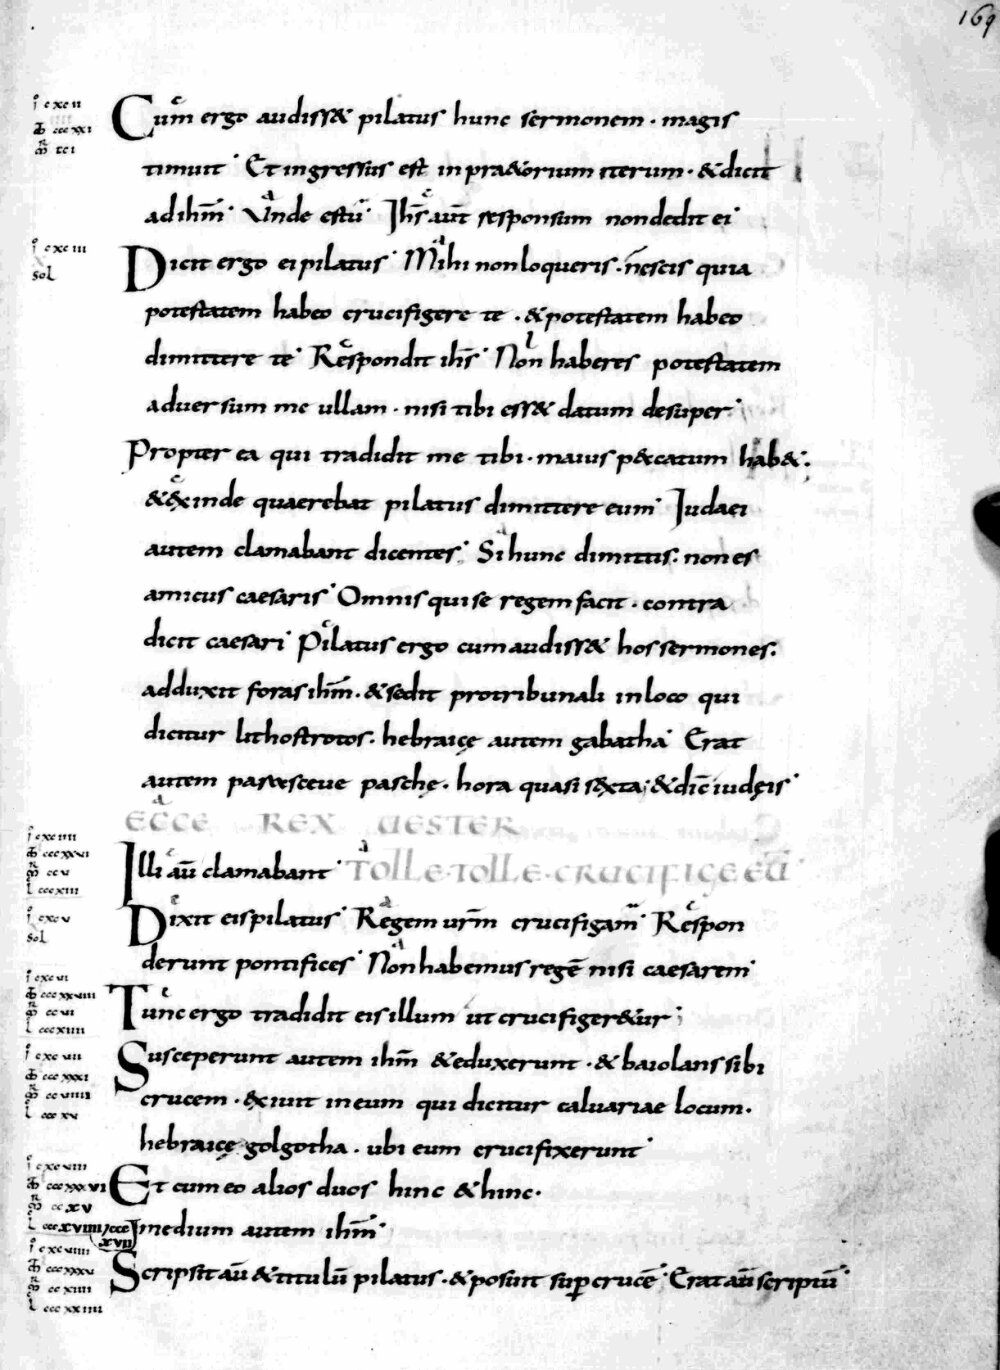 169
i cxcii
m̄ cccxxi
m̄r cci
Cum ergo audiss& pilatus hunc sermonem · magis
timuit · Et ingressus est in pra&orium iterum · & dicit
ad ihm̄ · Unde es tu · Ihs̄ aut̄ responsum non dedit ei ·
i cxciii
sol
Dicit ergo ei pilatus · Mihi non loqueris · nescis quia
potestatem habeo crucifigere te · & potestatem habeo
dimittere te · Respondit ihs̄ · Non haberes potestatem
adversum me ullam · nisi tibi ess& datum desuper ·
Propter ea qui tradidit me tibi · maius peccatum hab& ·
& exinde quaerebat pilatus dimittere eum · Iudaei
autem clamabant dicentes · Si hunc dimittis · non es
amicus caesaris · Omnis qui se regem facit · contra
dicit caesari · Pilatus ergo cum audiss& hos sermones ·
adduxit foras ihm̄ · & sedit pro tribunali in loco qui
dicitur lithostrotos · hebraicę autem gabatha · Erat
autem parasceue paschę · hora quasi sexta · & dic̄ iudęis ·
ECCE REX UESTER
i cxciiii
cccxxvi
ccv
l cccxiii
Illi aū clamabant · TOLLE · TOLLE · CRUCIFIGE EŪ
i cxcv
sol
Dixit eis pilatus · Regem urm̄ crucifigam · Respon
derunt pontifices · Non habemus regē nisi caesarem ·
i cxcvi
cccxxviii
ccvi
l cccxiiii
Tunc ergo tradidit eis illum ut crucifiger&ur ;
i cxcvii
cccxxxi
ccviiii
l cccxv
Susceperunt autem ihm̄ & eduxerunt · & baiolans sibi
crucem · exiuit in eum qui dicitur caluariae locum ·
hebraicę golgotha · ubi eum crucifixerunt ·
i cxcviii
cccxxxvi
ccxv
l cccxviiii cccxvii
Et cum eo alios duos hinc & hinc ·
Imedium autem ihm̄ ·
i cxcviiii
cccxxxv
ccxiiii
l cccxxiiii
Scripsit aū & titulū pilatus · & posuit sup̄ crucē · Erat aū scriptū ·